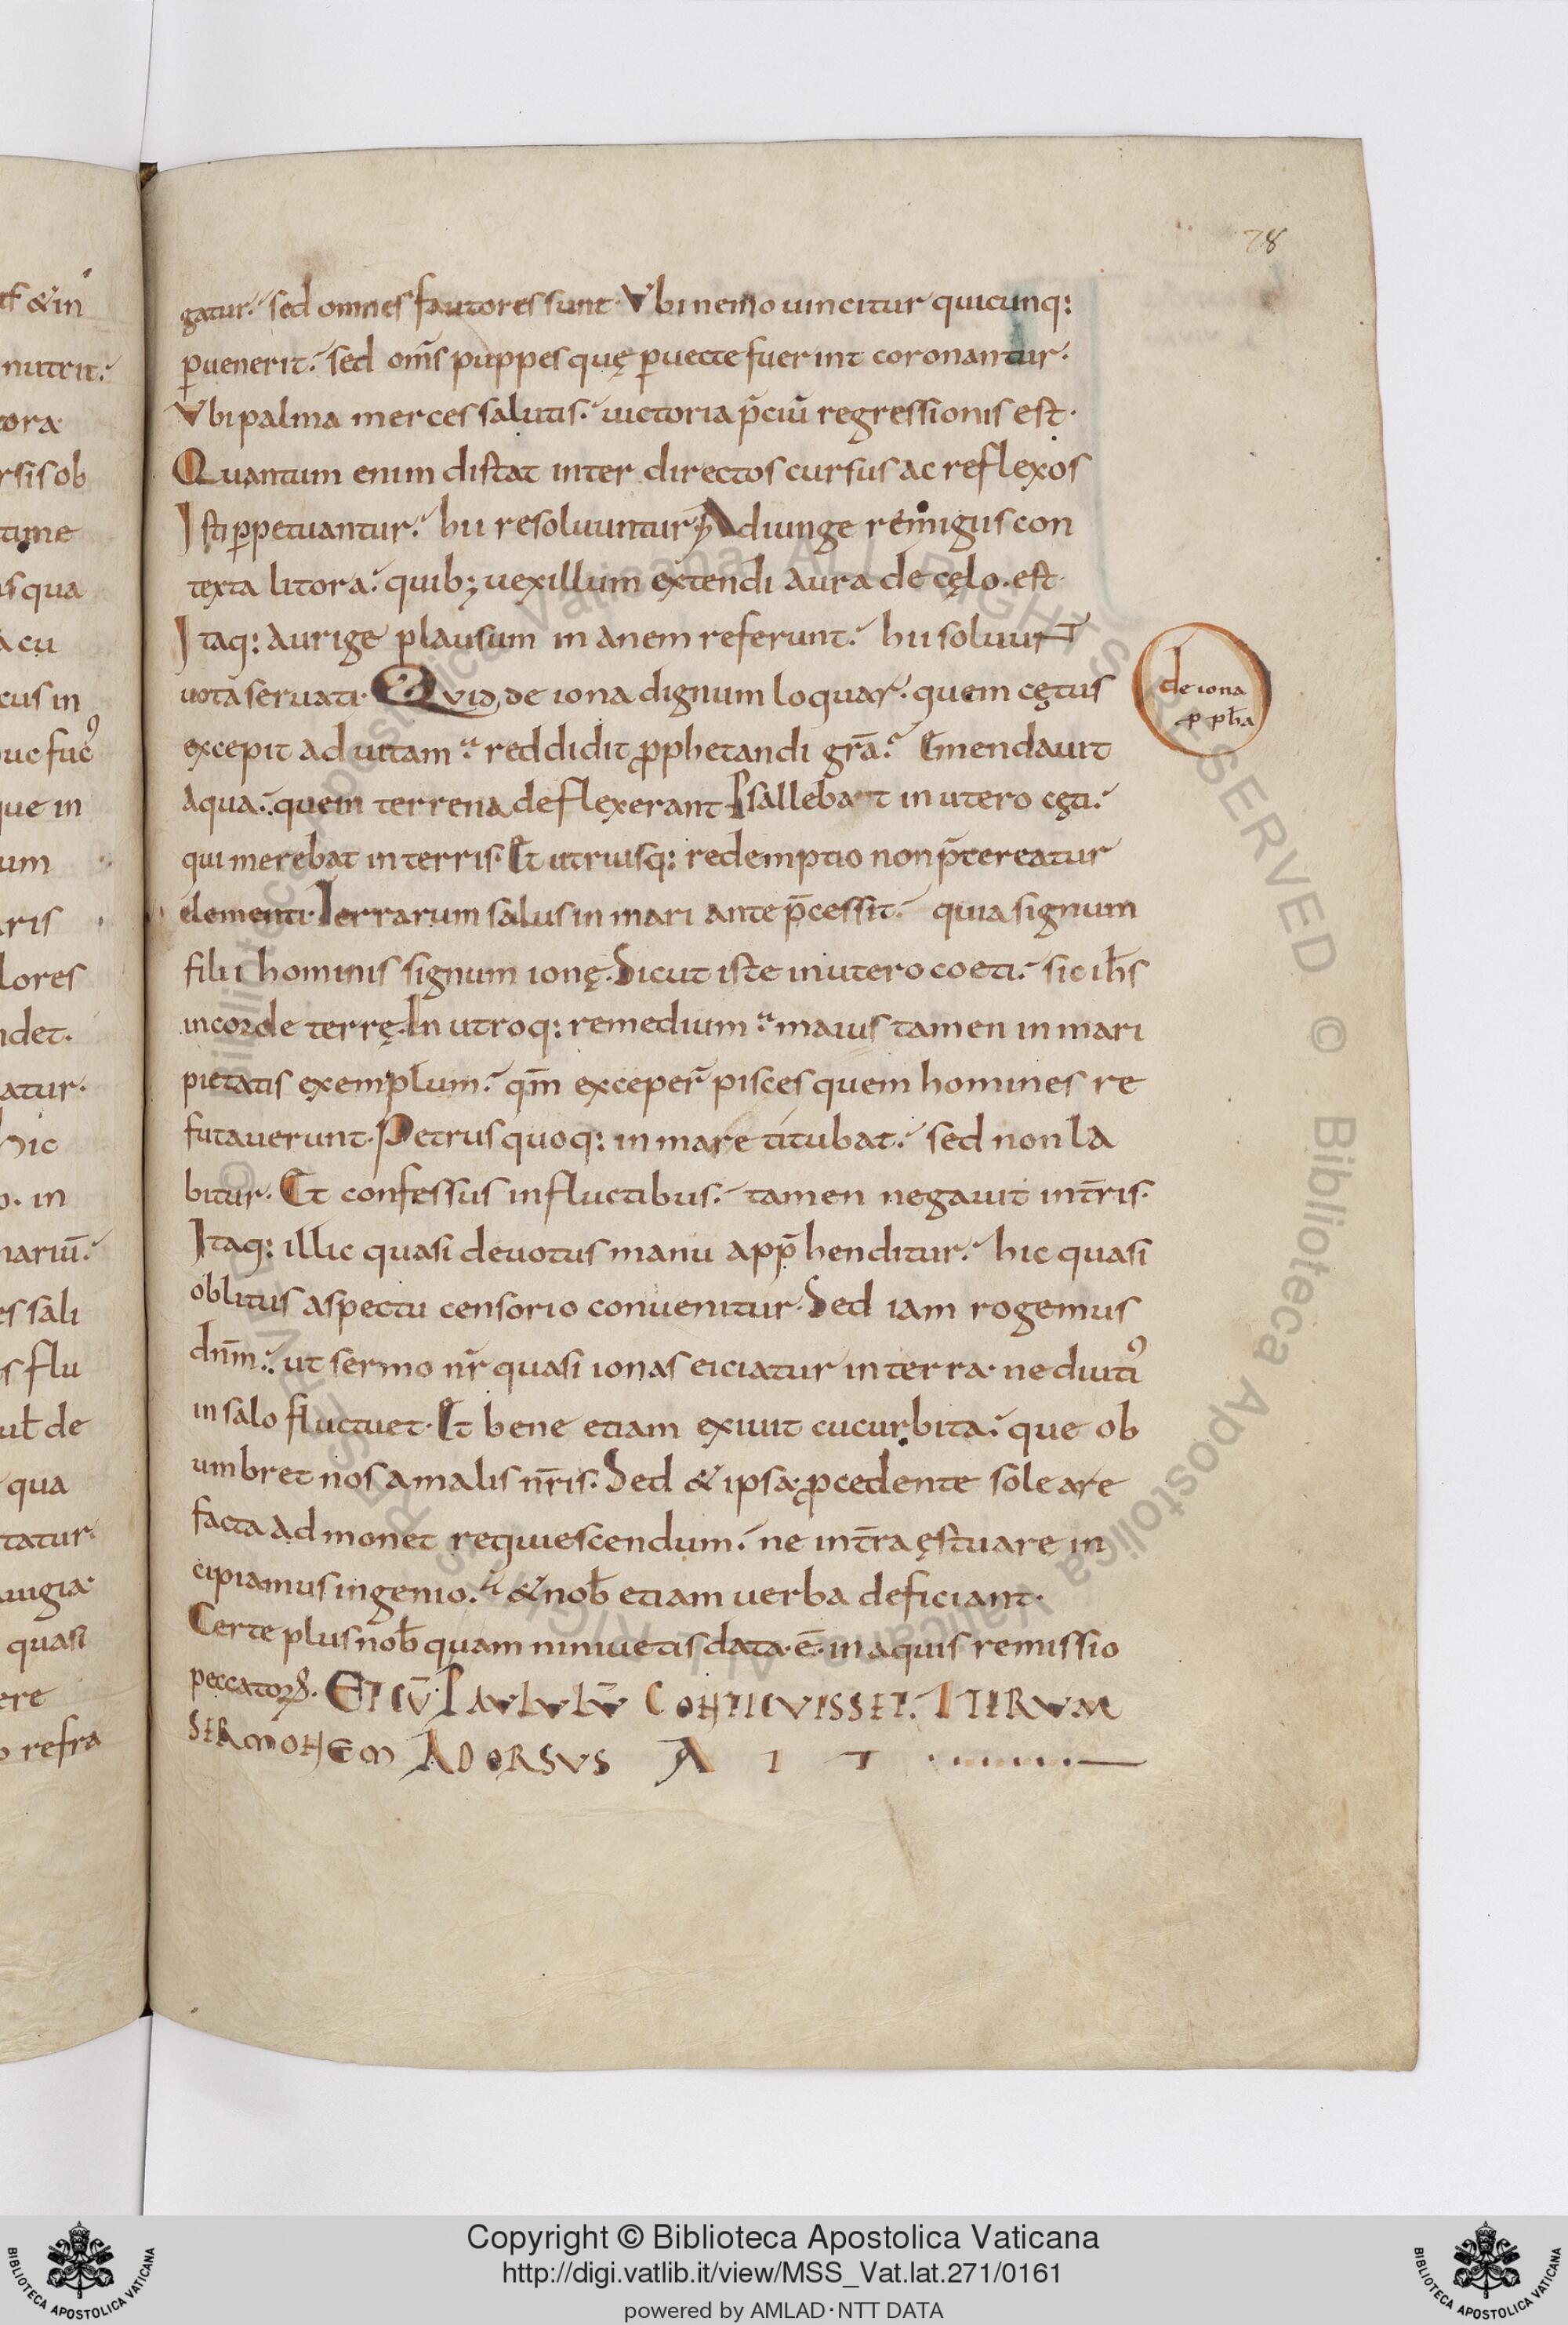 78
gatur. sed omnes fautores sunt. Vbi nemo uincitur quicunq:
puenerit. sed om̄s puppes quę puecte fuerint coronantur.
Vbi palma merces salutis. uictoria p̄ciū regressionis est.
Quantum enim distat inter directos cursus ac reflexos
Isti ppetuantur. hii resoluuntur. Adiunge remigiis con
texta litora. quib; uexillum extendi aura de cęlo. est.
Itaq: aurige plausum inanem referunt. hii soluunt
uota seruati. Quid de iona dignum loquar. quem cętus
excepit ad uitam. reddidit pphetandi grā. Emendauit
aqua. quem terrena deflexerant. Psallebat in utero cęti.
qui merebat in terris. Et utriusq: redemptio non p̄tereatur
elementi. Terrarum salus in mari ante p̄cessit. quia signum
filii hominis signum ionę. Sicut iste in utero coeti. sic ih̄s
in corde terrę. In utroq: remedium. maius tamen in mari
pietatis exemplum. qm̄ exceper̄ pisces quem homines re
futauerunt. Petrus quoq: in mare titubat. sed non la
bitur. Et confessus in fluctibus. tamen negauit in tr̄ris.
Itaq: illic quasi deuotus manu app̄henditur. hic quasi
oblitus aspectu censorio conuenitur. Sed iam rogemus
dn̄m. ut sermo nr̄ quasi ionas eiciatur in terra. ne diuti᾽
in salo fluctuet. Et bene etiam exiuit cucurbita. que ob
umbret nos a malis nr̄is. Sed & ipsa pcedente sole are
facta admonet requiescendum. ne in tr̄ra ęstuare in
cipiamus ingenio. & nob̄ etiam uerba deficiant.
Certe plus nob̄ quam niniuetis data. ē. in aquis remissio
peccatorꝝ. ET CŪ PAVLVLŪ CONTICVISSET. ITERVM
SERMONEM ADORSVS A I T
de iona
ppħa
Copyright © Biblioteca Apostolica Vaticana
http://digi.vatlib.it/view/MSS_Vat.lat.271/0161
powered by AMLAD·NTT DATA
BIBLIOTECA APOSTOLICA VATICANA
BIBLIOTECA APOSTOLICA VATICANA